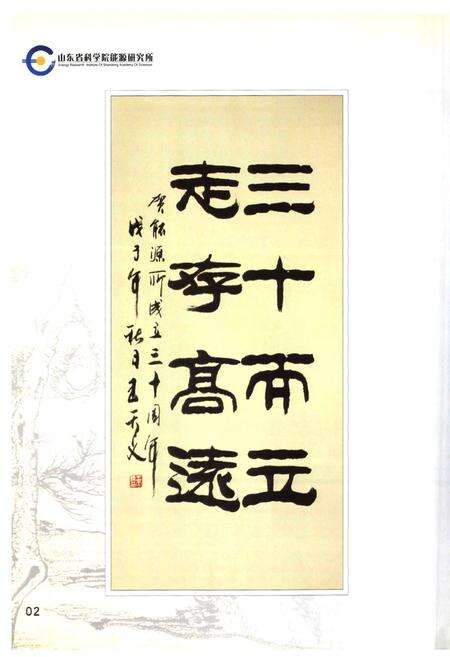 山东省科学院能源研究所
Energy Research Institute Of Shandong Academy Of Sciences
三十而立
志存高遠
贺能源所成立三十周年
戊子年秋月王天义
02